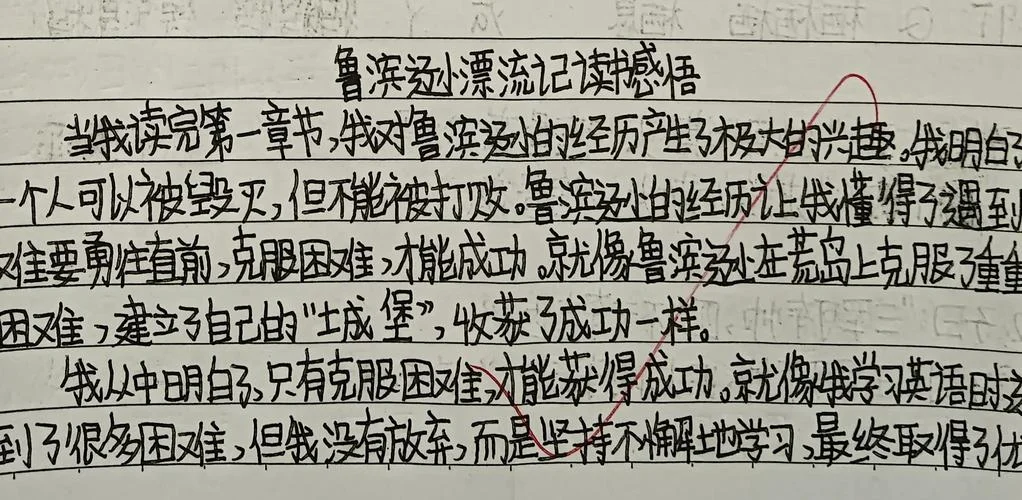 鲁滨逊漂流记读书感悟
当我读完第一章节,我对鲁滨逊的经历产生了极大的兴趣。我明白了
一个人可以被毁灭,但不能被打败。鲁滨逊的经历让我懂得了遇到
难要勇往直前,克服困难,才能成功。就像鲁滨逊在荒岛上克服了重重
困难,建立了自己的“土成堡”,收获了成功一样。
我从中明白了,只有克服困难,才能获得成功。就像我学习英语时
到了很多困难,但我没有放弃,而是坚持不懈地学习,最终取得了优